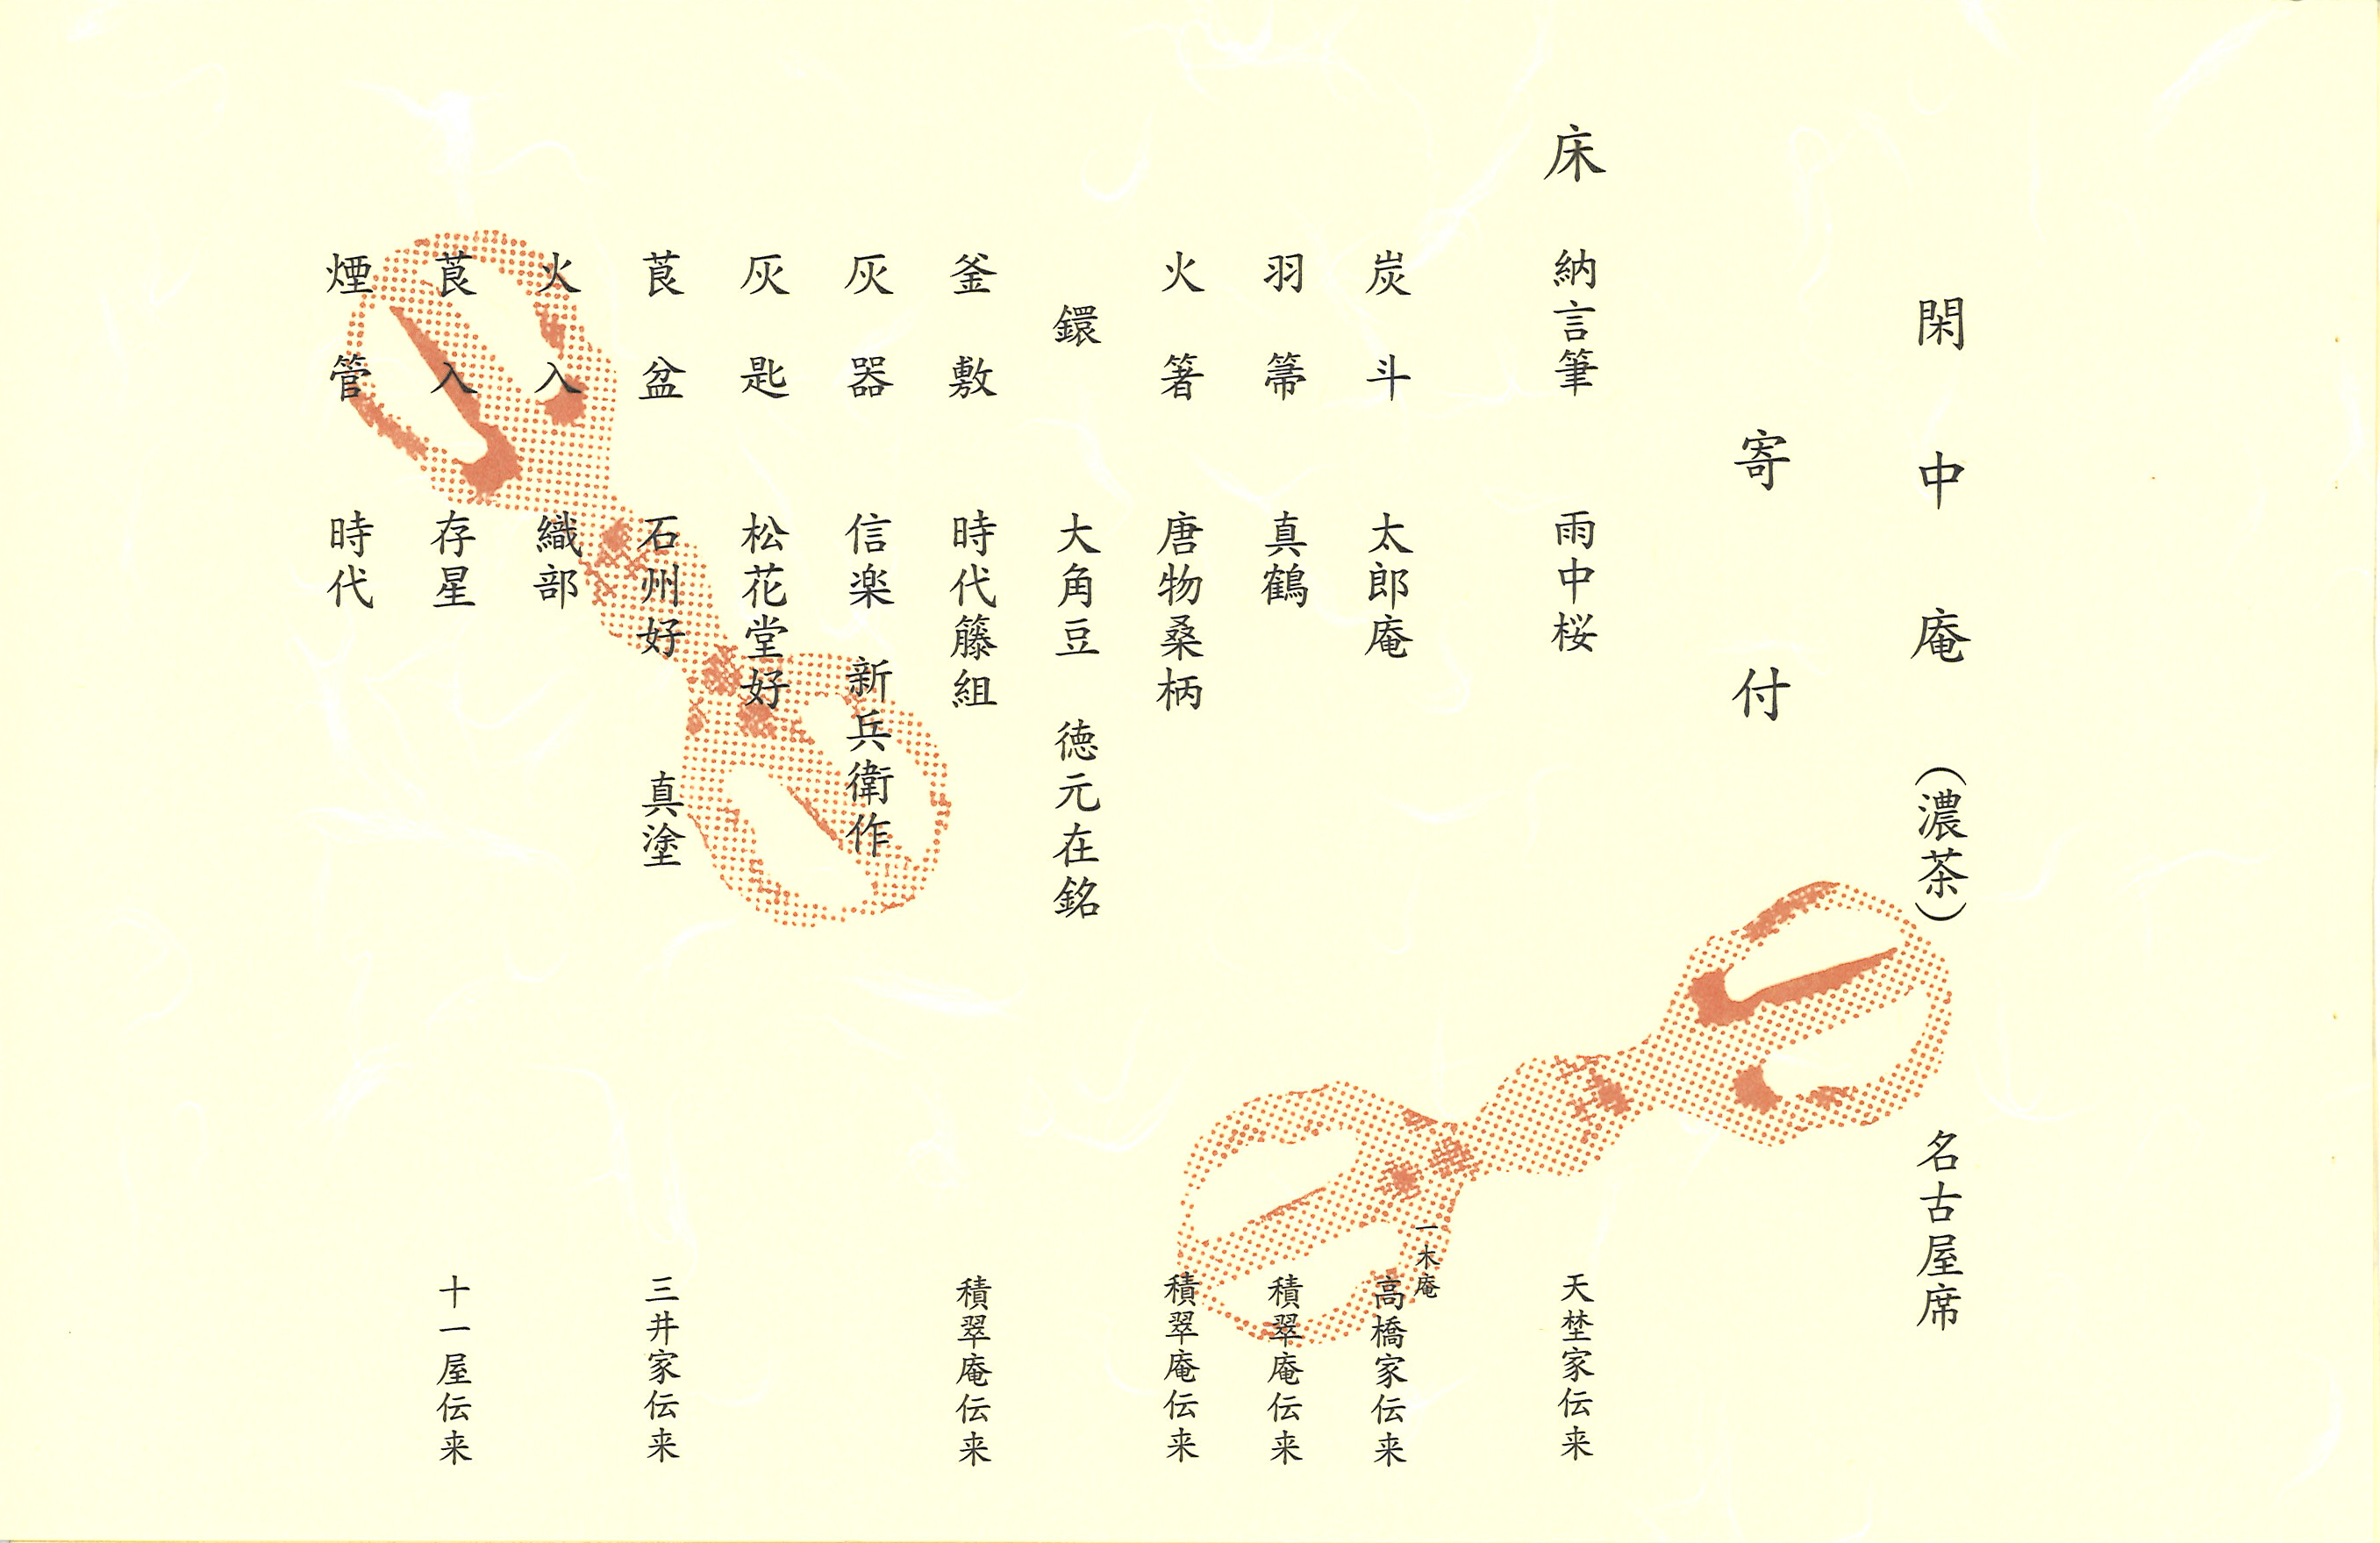 閑中庵（濃茶）　名古屋席
寄付
床　納言筆　雨中桜　天埜家伝来
炭斗　太郎庵　一木庵高橋家伝来
羽箒　真鶴　積翠庵伝来
火箸　唐物桑柄　積翠庵伝来
鐶　大角豆　徳元在銘
釜敷　時代籐組　積翠庵伝来
灰器　信楽　新兵衛作
灰匙　松花堂好
莨盆　石州好　真塗　三井家伝来
火入　織部
莨入　存星　十一屋伝来
煙管　時代